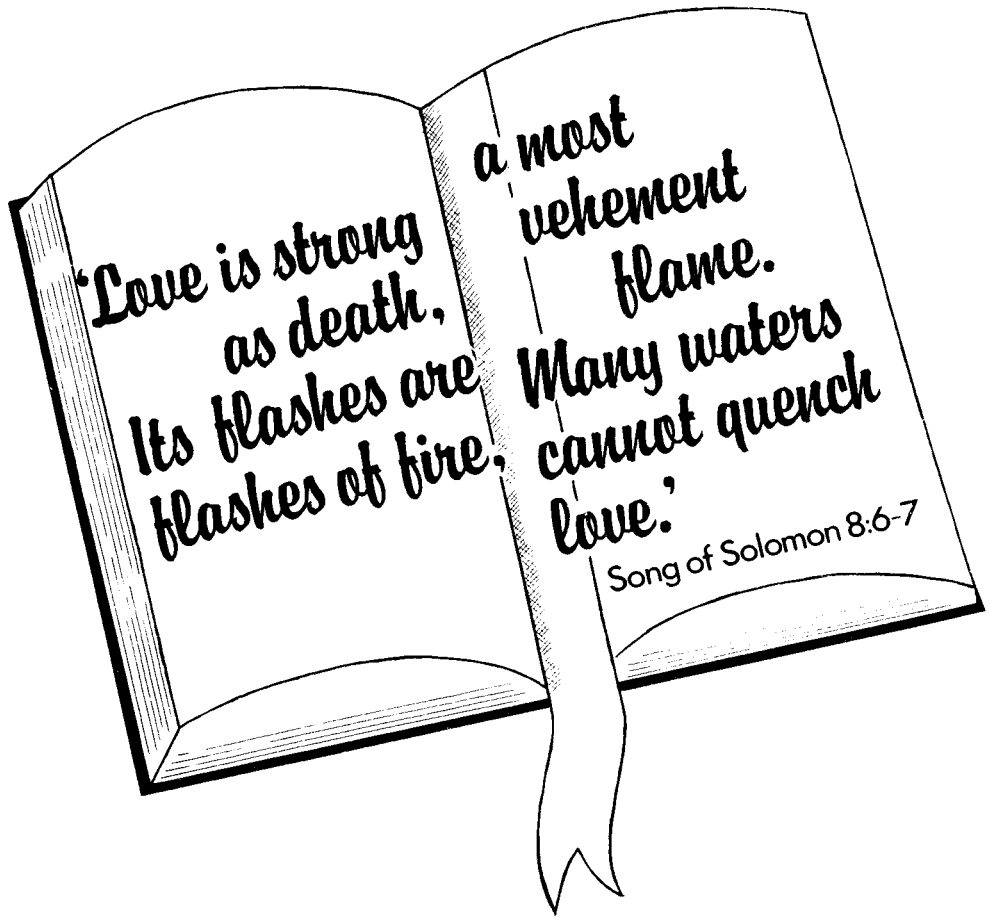 ‘Love is strong
as death,
Its flashes are
flashes of fire,
a most
vehement
flame.
Many waters
cannot quench
love.’
Song of Solomon 8:6-7